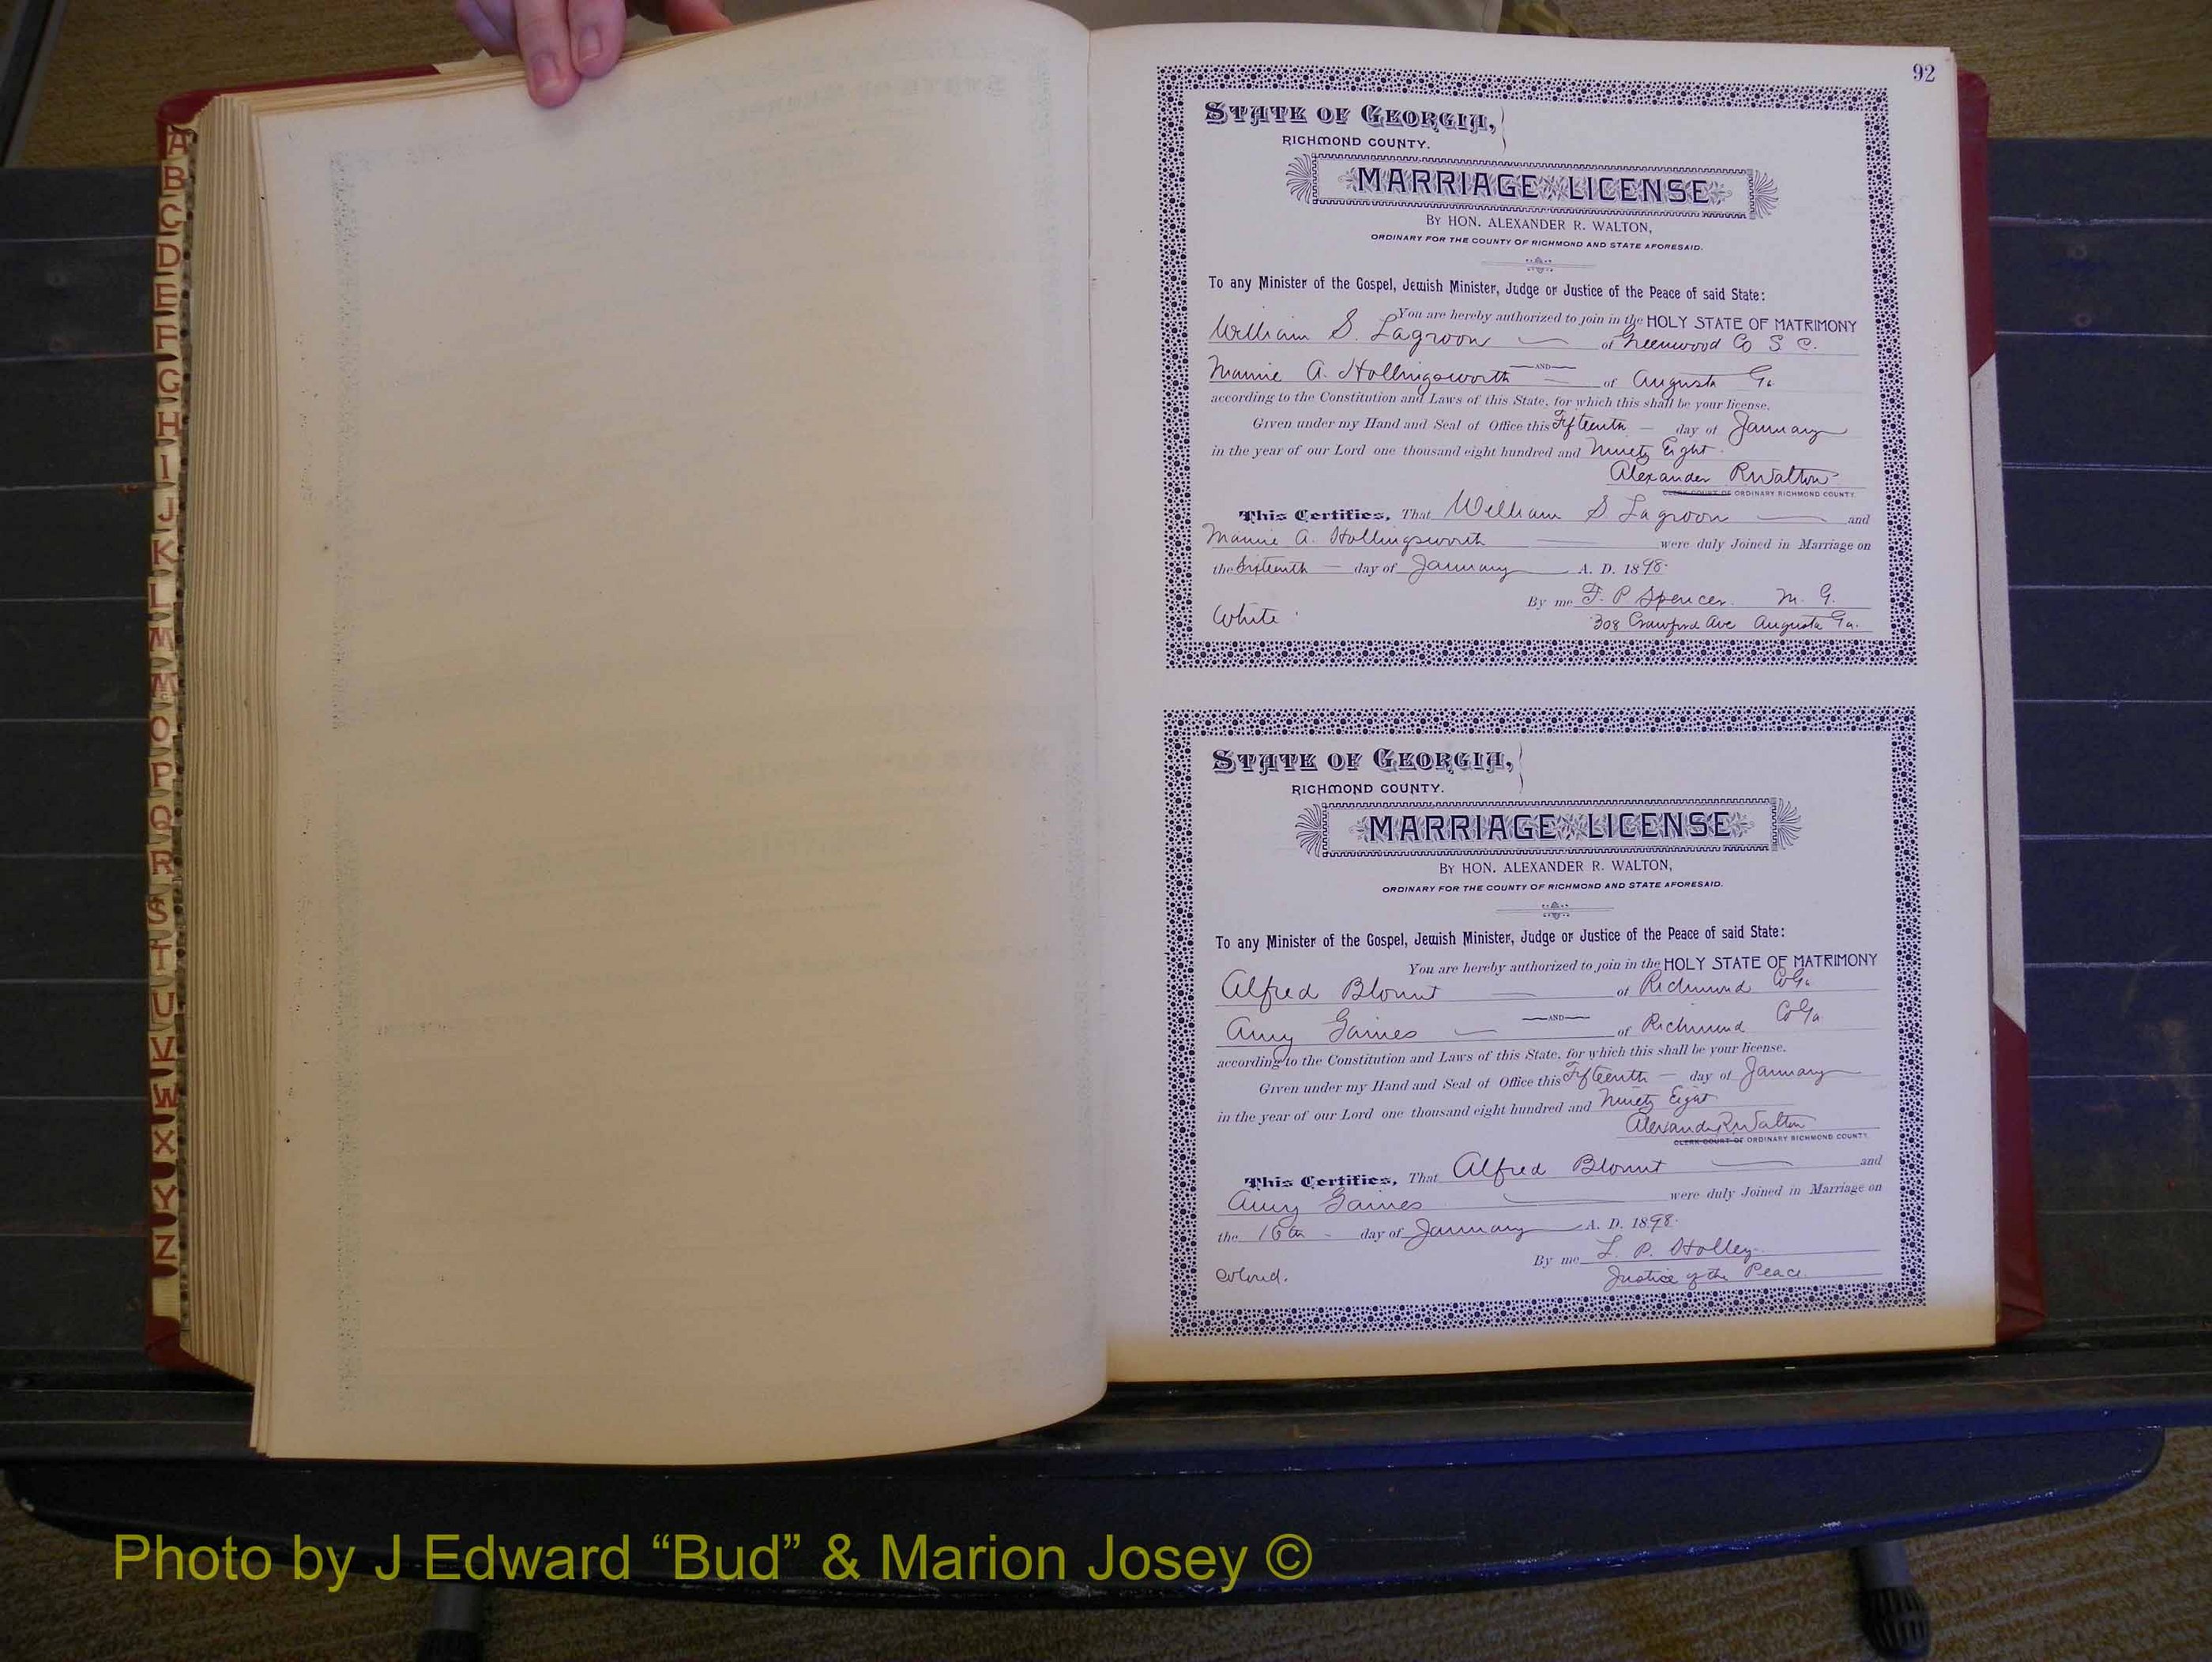 92
STATE OF GEORGIA,
RICHMOND COUNTY.
MARRIAGE LICENSE
BY HON. ALEXANDER R. WALTON,
ORDINARY FOR THE COUNTY OF RICHMOND AND STATE AFORESAID.
To any Minister of the Gospel, Jewish Minister, Judge or Justice of the Peace of said State:
You are hereby authorized to join in the HOLY STATE OF MATRIMONY
William S. Lagroon of Greenwood Co S. C.
AND
Mamie A. Hollingsworth of Augusta Ga
according to the Constitution and Laws of this State, for which this shall be your license.
Given under my Hand and Seal of Office this Fifteenth day of January
in the year of our Lord one thousand eight hundred and Ninety Eight.
Alexander R Walton
CLERK COURT OF ORDINARY RICHMOND COUNTY.
This Certifies, That William S Lagroon and
Mamie A. Hollingsworth were duly Joined in Marriage on
the Sixteenth day of January A. D. 1898.
By me F. P Spencer. M. G.
White 308 Crawford Ave Augusta Ga.
STATE OF GEORGIA,
RICHMOND COUNTY.
MARRIAGE LICENSE
BY HON. ALEXANDER R. WALTON,
ORDINARY FOR THE COUNTY OF RICHMOND AND STATE AFORESAID.
To any Minister of the Gospel, Jewish Minister, Judge or Justice of the Peace of said State:
You are hereby authorized to join in the HOLY STATE OF MATRIMONY
Alfred Blount of Richmond Co Ga
AND
Amy Gaines of Richmond Co Ga
according to the Constitution and Laws of this State, for which this shall be your license.
Given under my Hand and Seal of Office this Fifteenth day of January
in the year of our Lord one thousand eight hundred and Ninety Eight
Alexander R Walton
CLERK COURT OF ORDINARY RICHMOND COUNTY.
This Certifies, That Alfred Blount and
Amy Gaines were duly Joined in Marriage on
the 16th day of January A. D. 1898.
By me L. P. Holley
Colored. Justice of the Peace
A
B
C
D
E
F
G
H
I
J
K
L
M
Mc
O
P
Q
R
S
T
U
V
W
X
Y
Z
Photo by J Edward “Bud” & Marion Josey ©